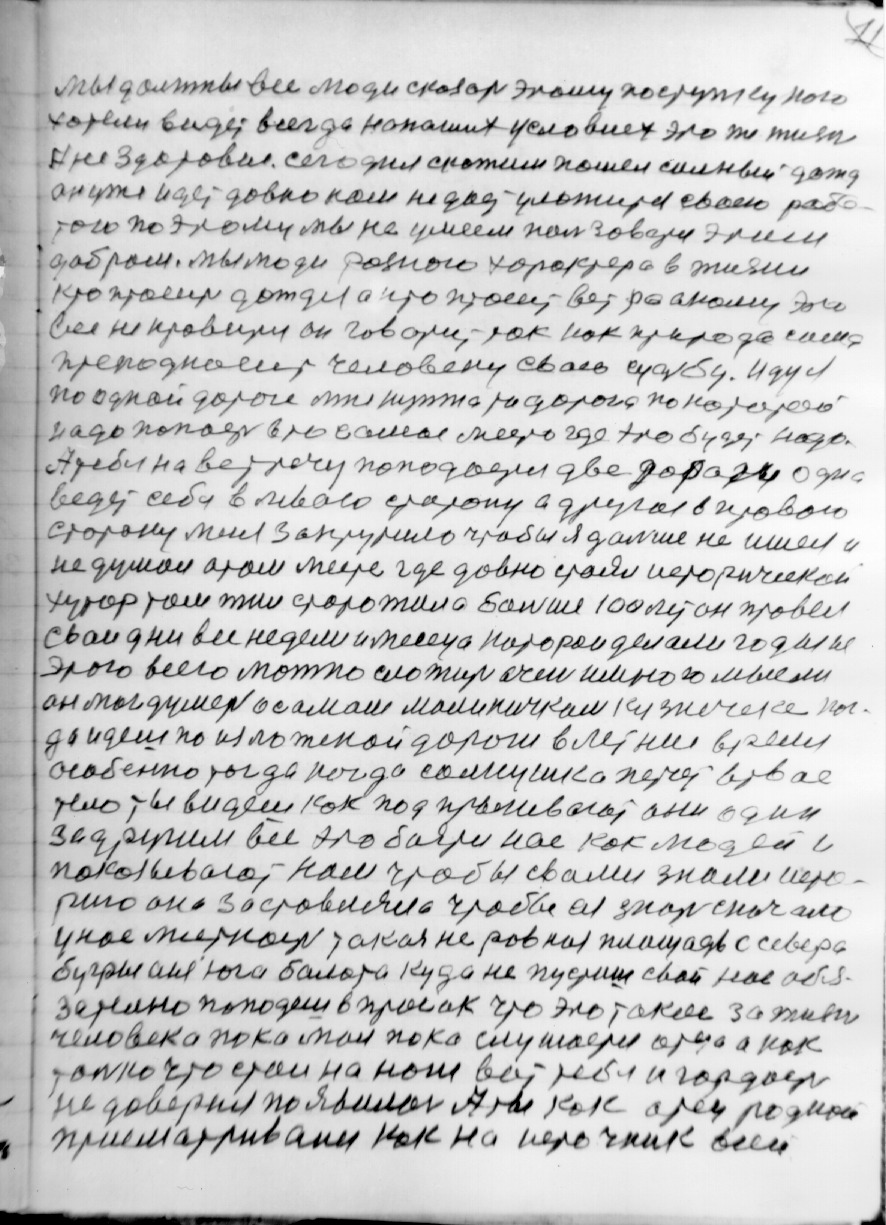 11
мы должны все люди сказать этому поступку кого
хотели видет всегда на наших условиех это же жизн
А не здоровье. сегодня скажим пошел силный дожд
он уже идет довно нам не дает уложится своею рабо-
тою по этому мы не умеем ползоватя этим
добром. мы люди разного характера в жизни
кто просит дождя а кто просит вет разному это
все не нравится он говорит так как природа сама
преподносит человеку свою судбу. иду я
по одной дороге мне нужна та дорога по которой
надо попаст в то самое место где это будет надо.
А тебя на встречу поподаеш две дороги одна
ведет себя в левою сторону а другая в правою
сторону меня закрутило чтобы я далше не шел и
не думал отом месте где довно стоял историческай
хутор там жил старожила болше 100 лет он провел
сваи дни все недели и месеца которои делали годы из
этого всего можно сложит очен и много мысли
он мог думет о самом малиничком кузнечеке ког-
да идеш по изложеной дороги в летние время
особенно тогда когда солнушка печет в твое
тело ты видеш как подпрыгивают они один
за другим все это боятся нас как людей и
показывают нам чтобы свами знали исто-
рию она заставляла чтобы ея знат сначало
у нас местност такая не ровная площадь с севера
бугры а из юга балота куда не пустиш свой нос обя-
зателно поподеш в просак что это такое за жизн
человека пока мал пока слушаеш отца а как
толко что стал на ноги вот тебя и гордост
не доверия появилас А ты как отец родной
присматриваеш как на источник всей